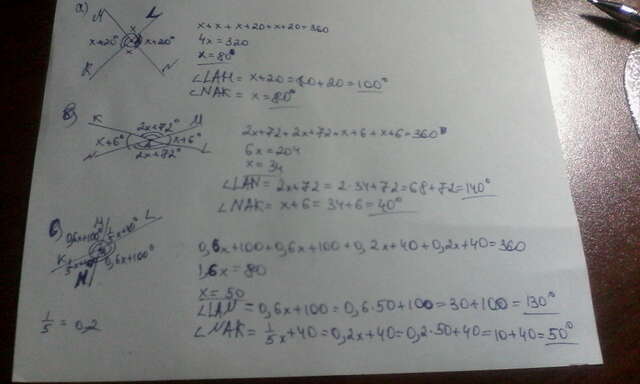 а)
M L
x
x+20° x+20°
x
K N
x+x+x+20+x+20=360
4x=320
x=80°
∠LAM=x+20=80+20=100°
∠NAK=x=80°
в)
K M
2x+72°
x+6° x+6°
N L
2x+72°
2x+72+2x+72+x+6+x+6=360°
6x=204
x=34
∠LAN=2x+72=2·34+72=68+72=140°
∠NAK=x+6=34+6=40°
б)
M L
0,6x+100° 1/5x+40°
K 0,6x+100°
N
0,6x+100+0,6x+100+0,2x+40+0,2x+40=360
1,6x=80
x=50
∠LAN=0,6x+100=0,6·50+100=30+100=130°
1/5=0,2
∠NAK=1/5x+40=0,2x+40=0,2·50+40=10+40=50°